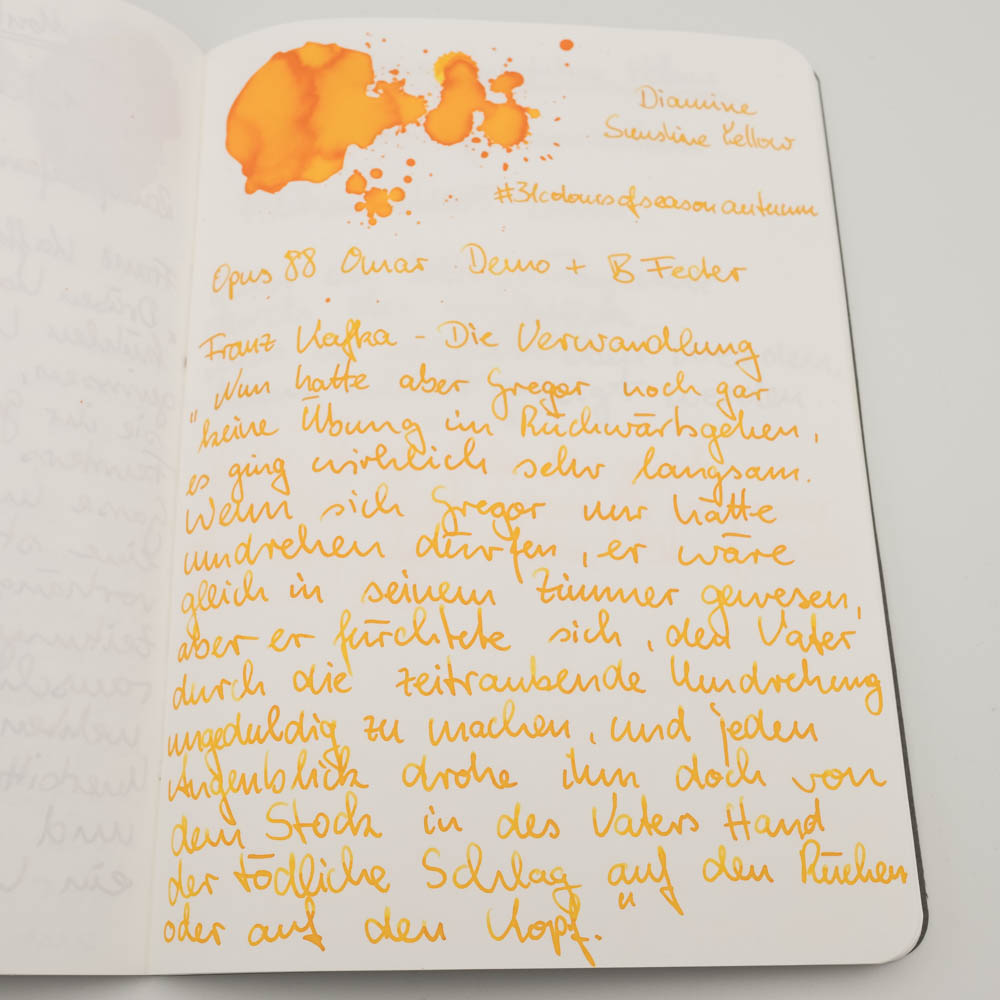 Diamine
Sunshine Yellow
#31coloursofseasonautumn
Opus 88 Omar Demo + B Feder
Franz Kafka - Die Verwandlung
"Nun hatte aber Gregor noch gar
keine Übung im Rückwärtsgehen,
es ging wirklich sehr langsam.
Wenn sich Gregor nur hätte
umdrehen dürfen, er wäre
gleich in seinem Zimmer gewesen,
aber er fürchtete sich, den Vater
durch die zeitraubende Umdrehung
ungeduldig zu machen, und jeden
Augenblick drohe ihm doch von
dem Stock in des Vaters Hand
der tödliche Schlag auf den Rücken
oder auf den Kopf."